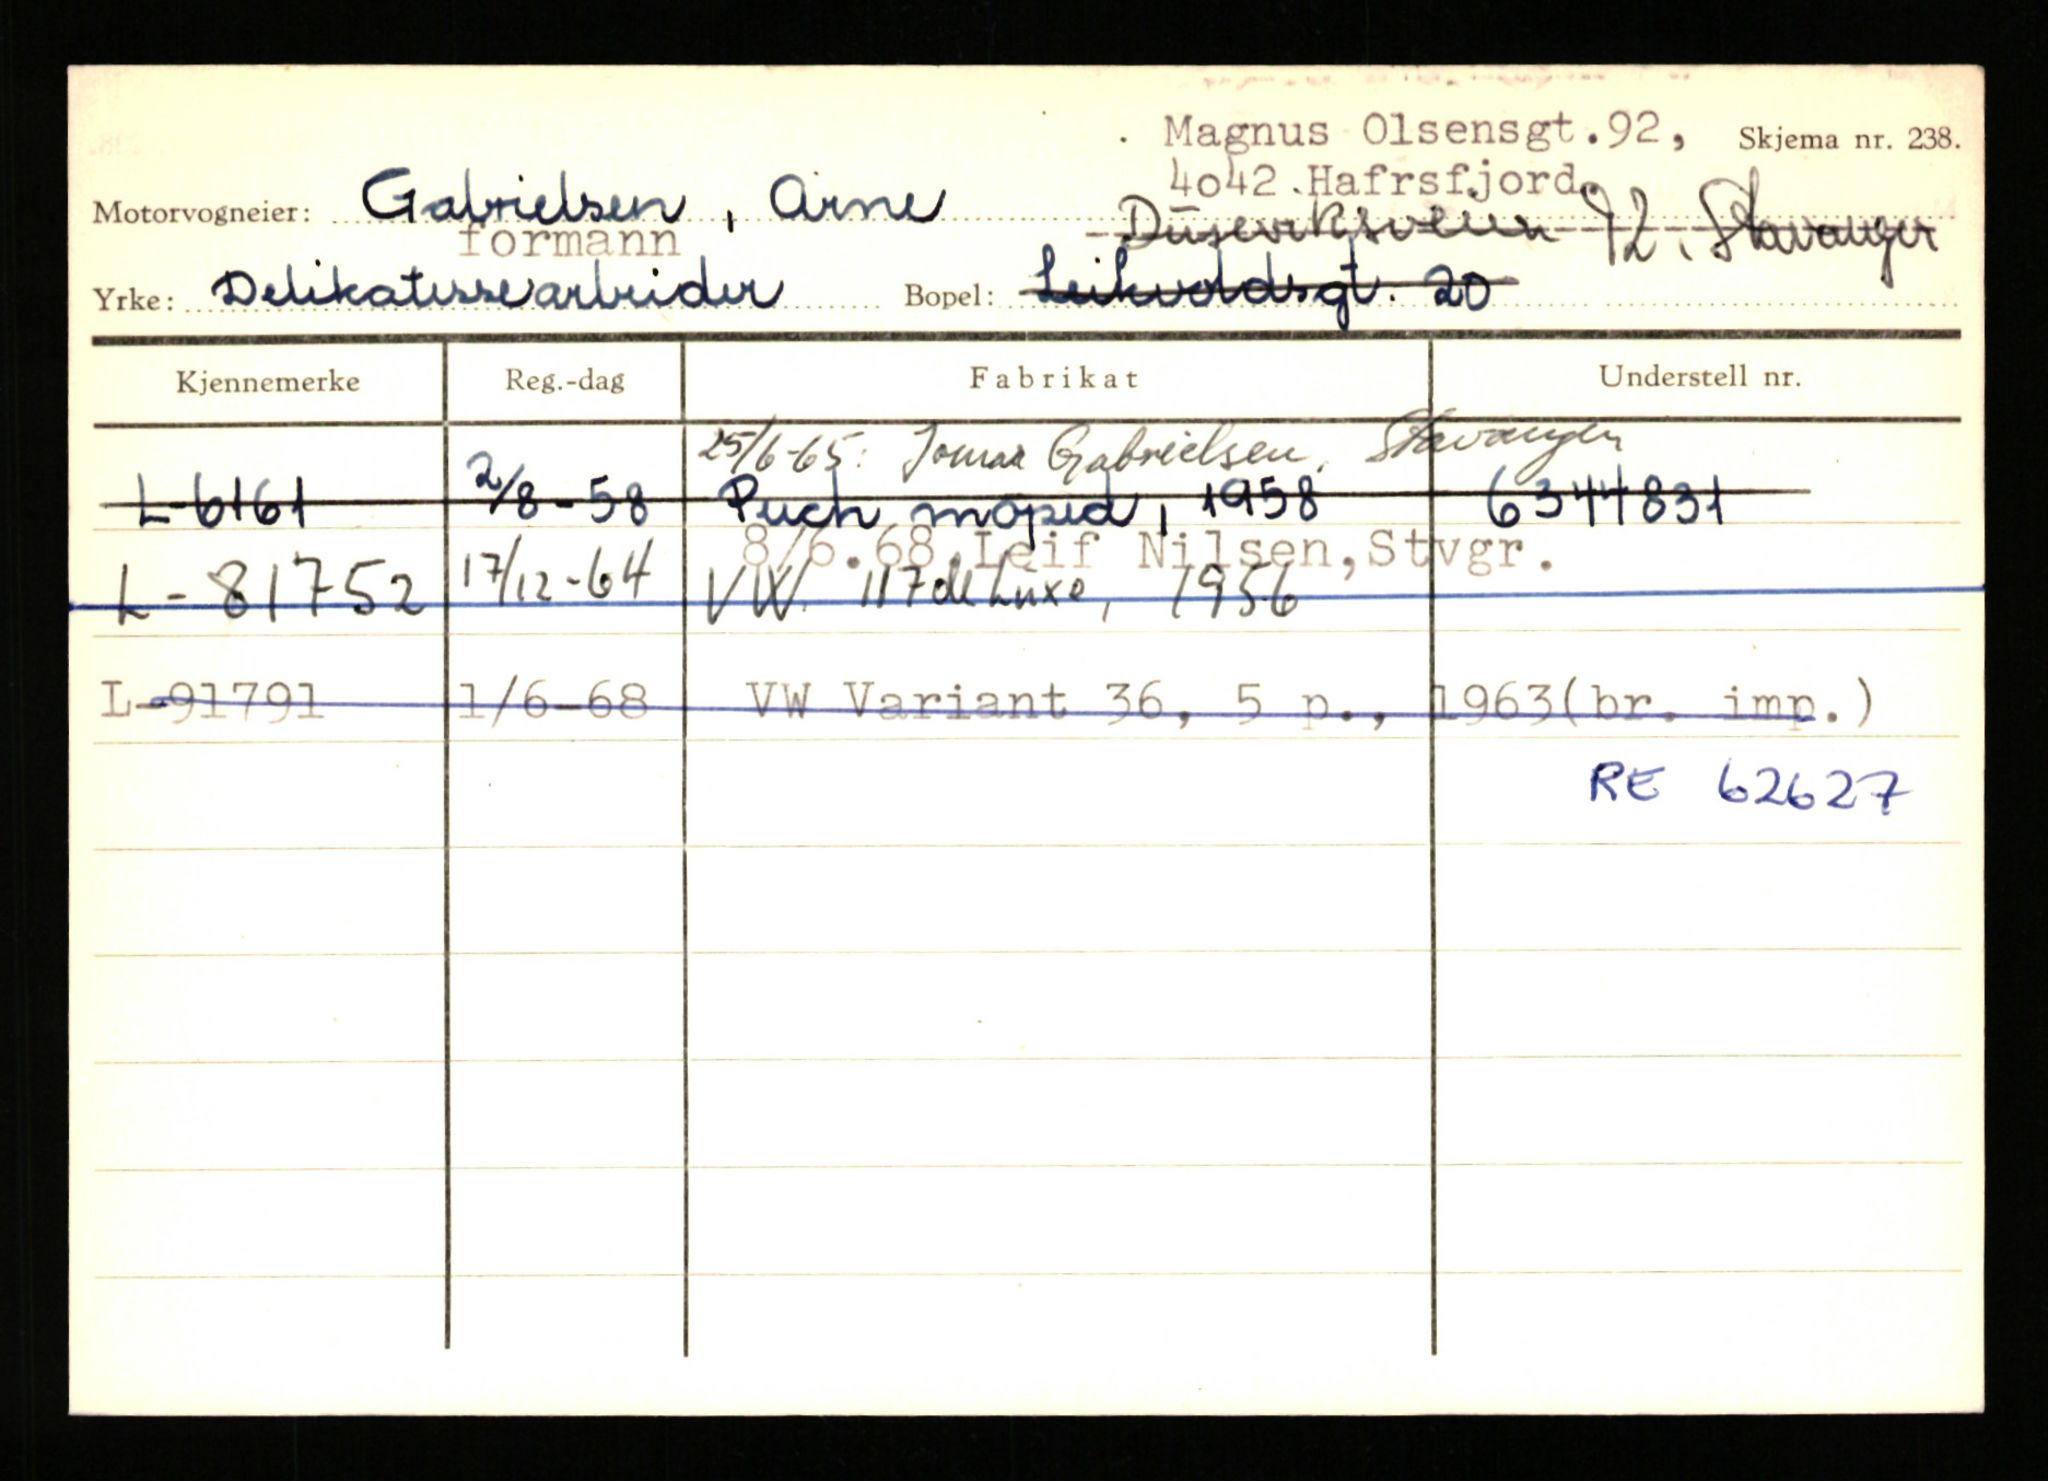 Magnus Olsensgt.92, Skjema nr. 238.
4o42 Hafrsfjord.
Motorvogneier: Gabrielsen, Arne
Duseviksveien 92. Stavanger
formann
Yrke: Delikatessearbeider Bopel: Leikvoldsgt. 20
Kjennemerke Reg.-dag Fabrikat Understell nr.
25/6-65: Jomar Gabrielsen, Stavanger
L-6161 2/8-58 Puch moped, 1958 6344831
8/6.68 Leif Nilsen,Stvgr.
L-81752 17/12-64 VW. 117 de Luxe, 1956
L-91791 1/6-68 VW Variant 36, 5 p., 1963(br. imp.)
RE 62627